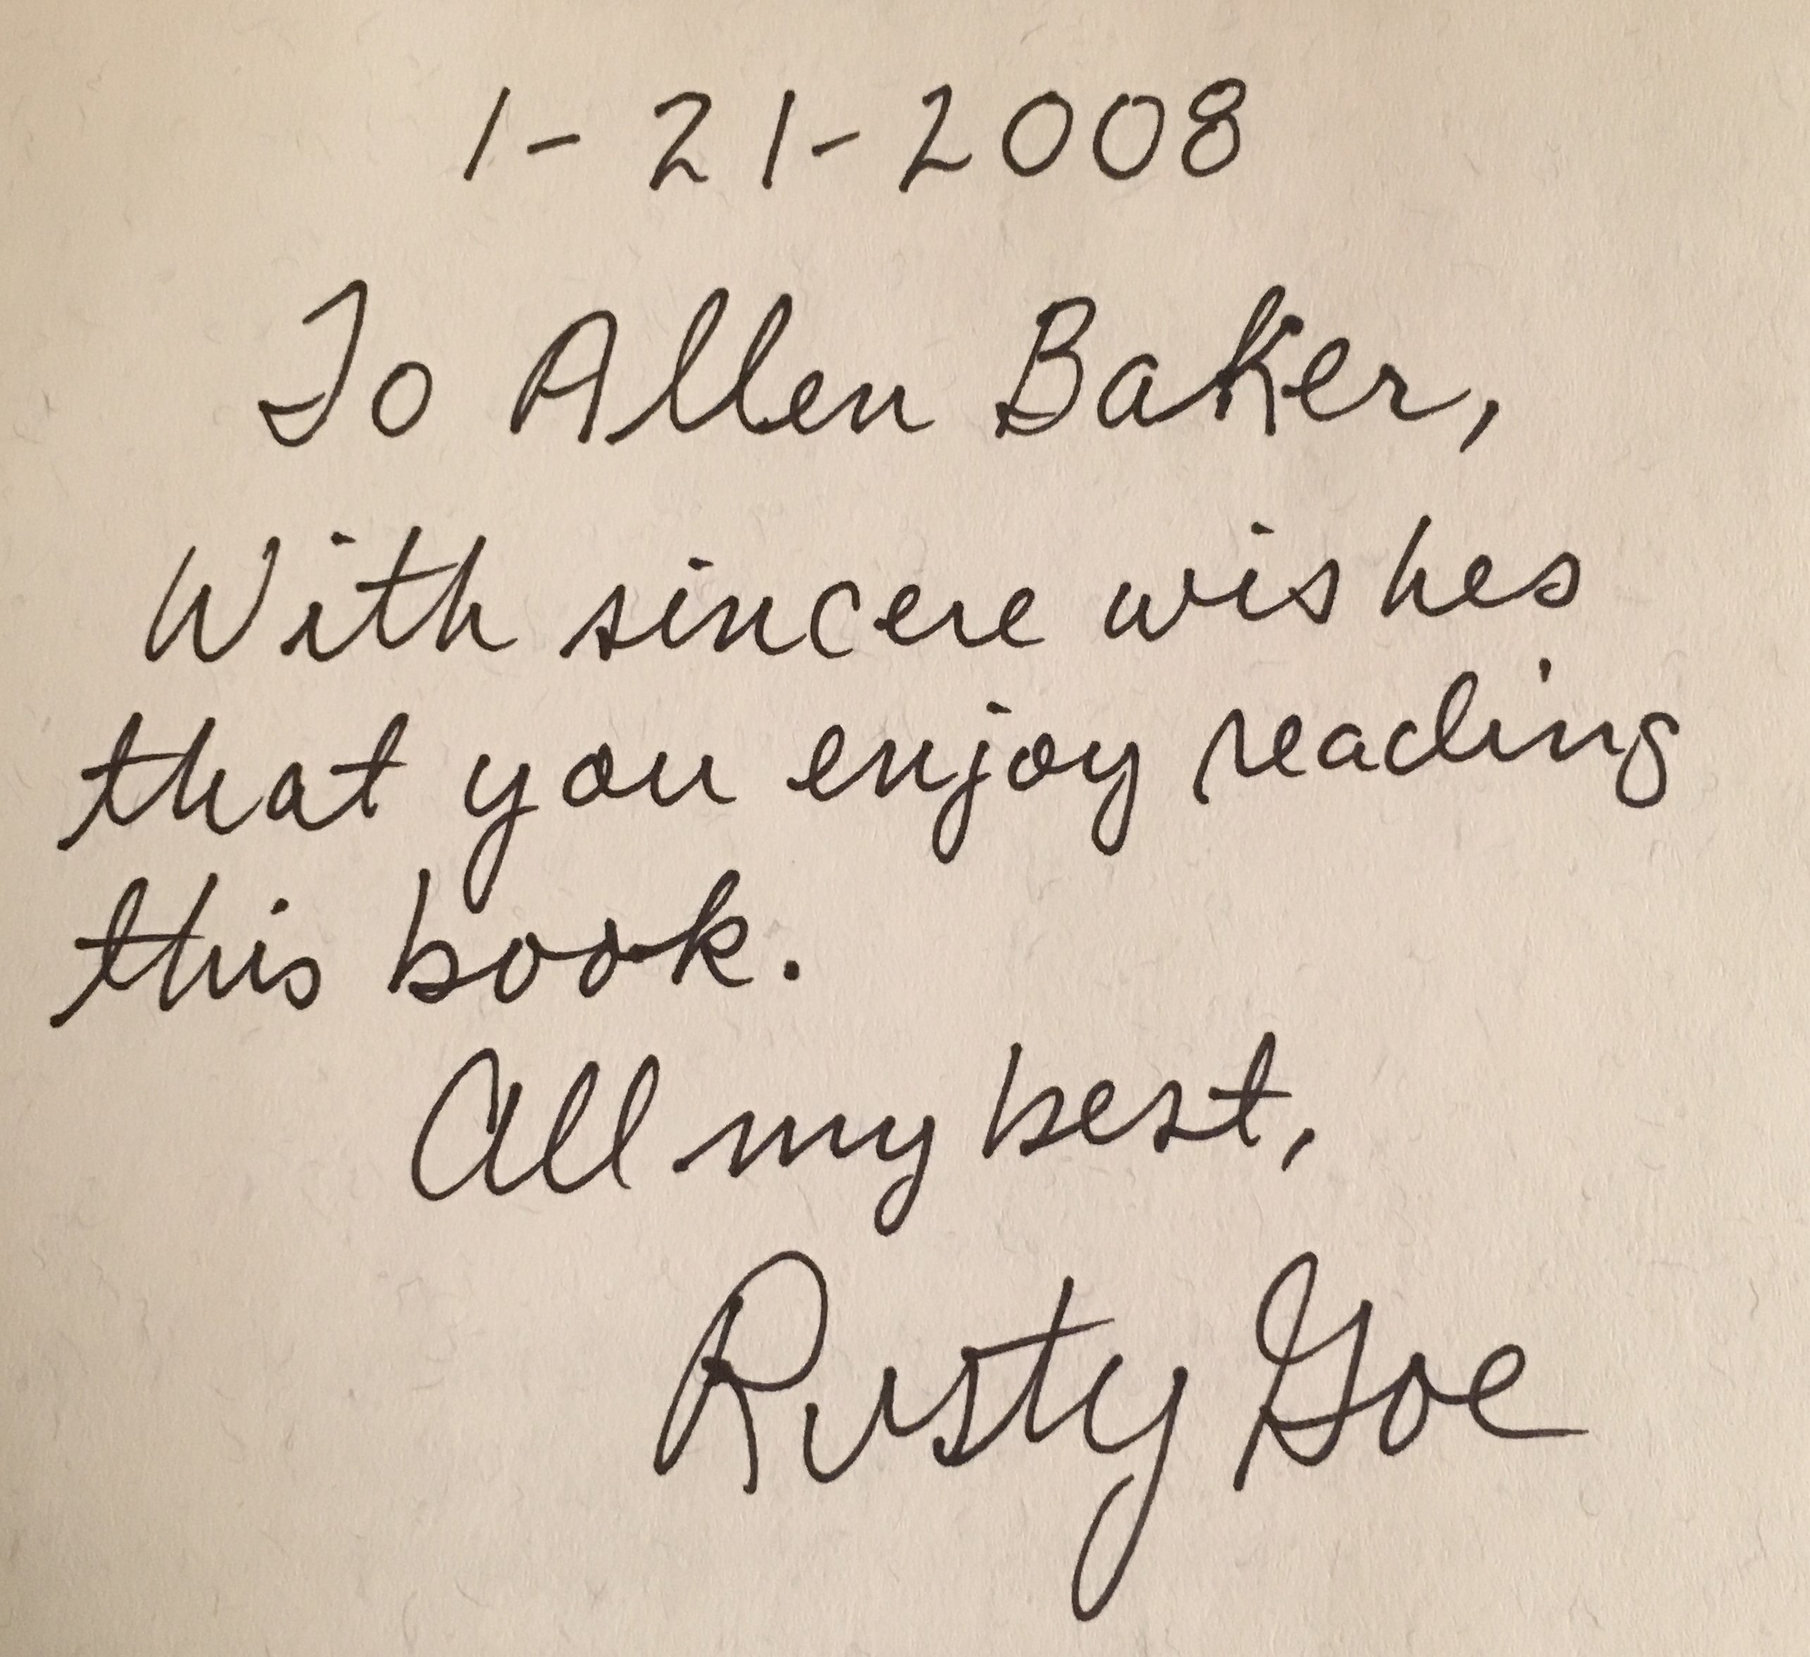 1-21-2008
To Allen Baker,
With sincere wishes
that you enjoy reading
this book.
All my best,
Rusty Goe